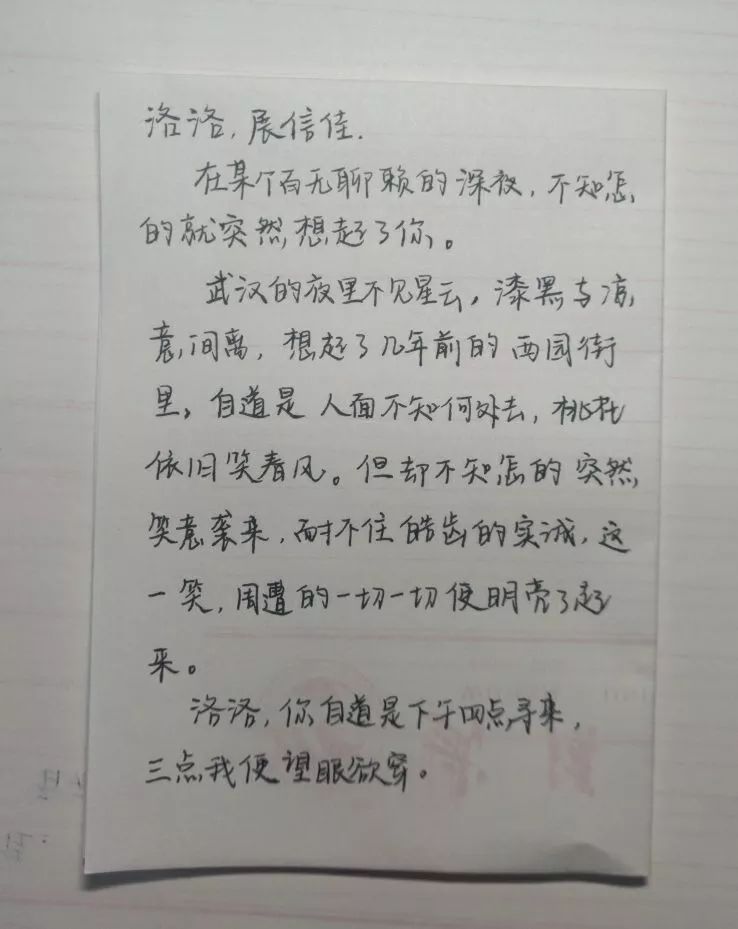 洛洛,展信佳.
在某个百无聊赖的深夜,不知怎
的就突然想起了你。
武汉的夜里不见星云,漆黑与凉
意间离,想起了几年前的西园街
里,自道是人面不知何处去,桃花
依旧笑春风。但却不知怎的突然
笑意袭来,耐不住皓齿的实诚,这
一笑,周遭的一切一切便明亮了起
来。
洛洛,你自道是下午四点寻来,
三点我便望眼欲穿。